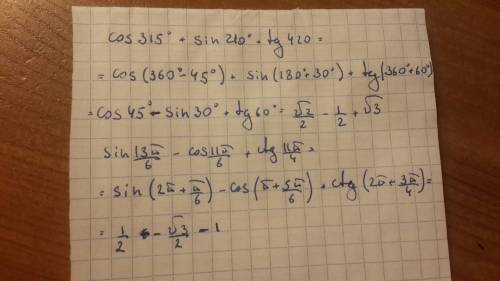 cos 315° + sin 210° + tg 420 =
= cos (360° - 45°) + sin (180° + 30°) + tg (360° + 60°)
= cos 45° - sin 30° + tg 60° = √2/2 - 1/2 + √3
sin 13π/6 - cos 11π/6 + ctg 11π/4 =
= sin (2π + π/6) - cos (π + 5π/6) + ctg (2π + 3π/4) =
= 1/2 - √3/2 - 1